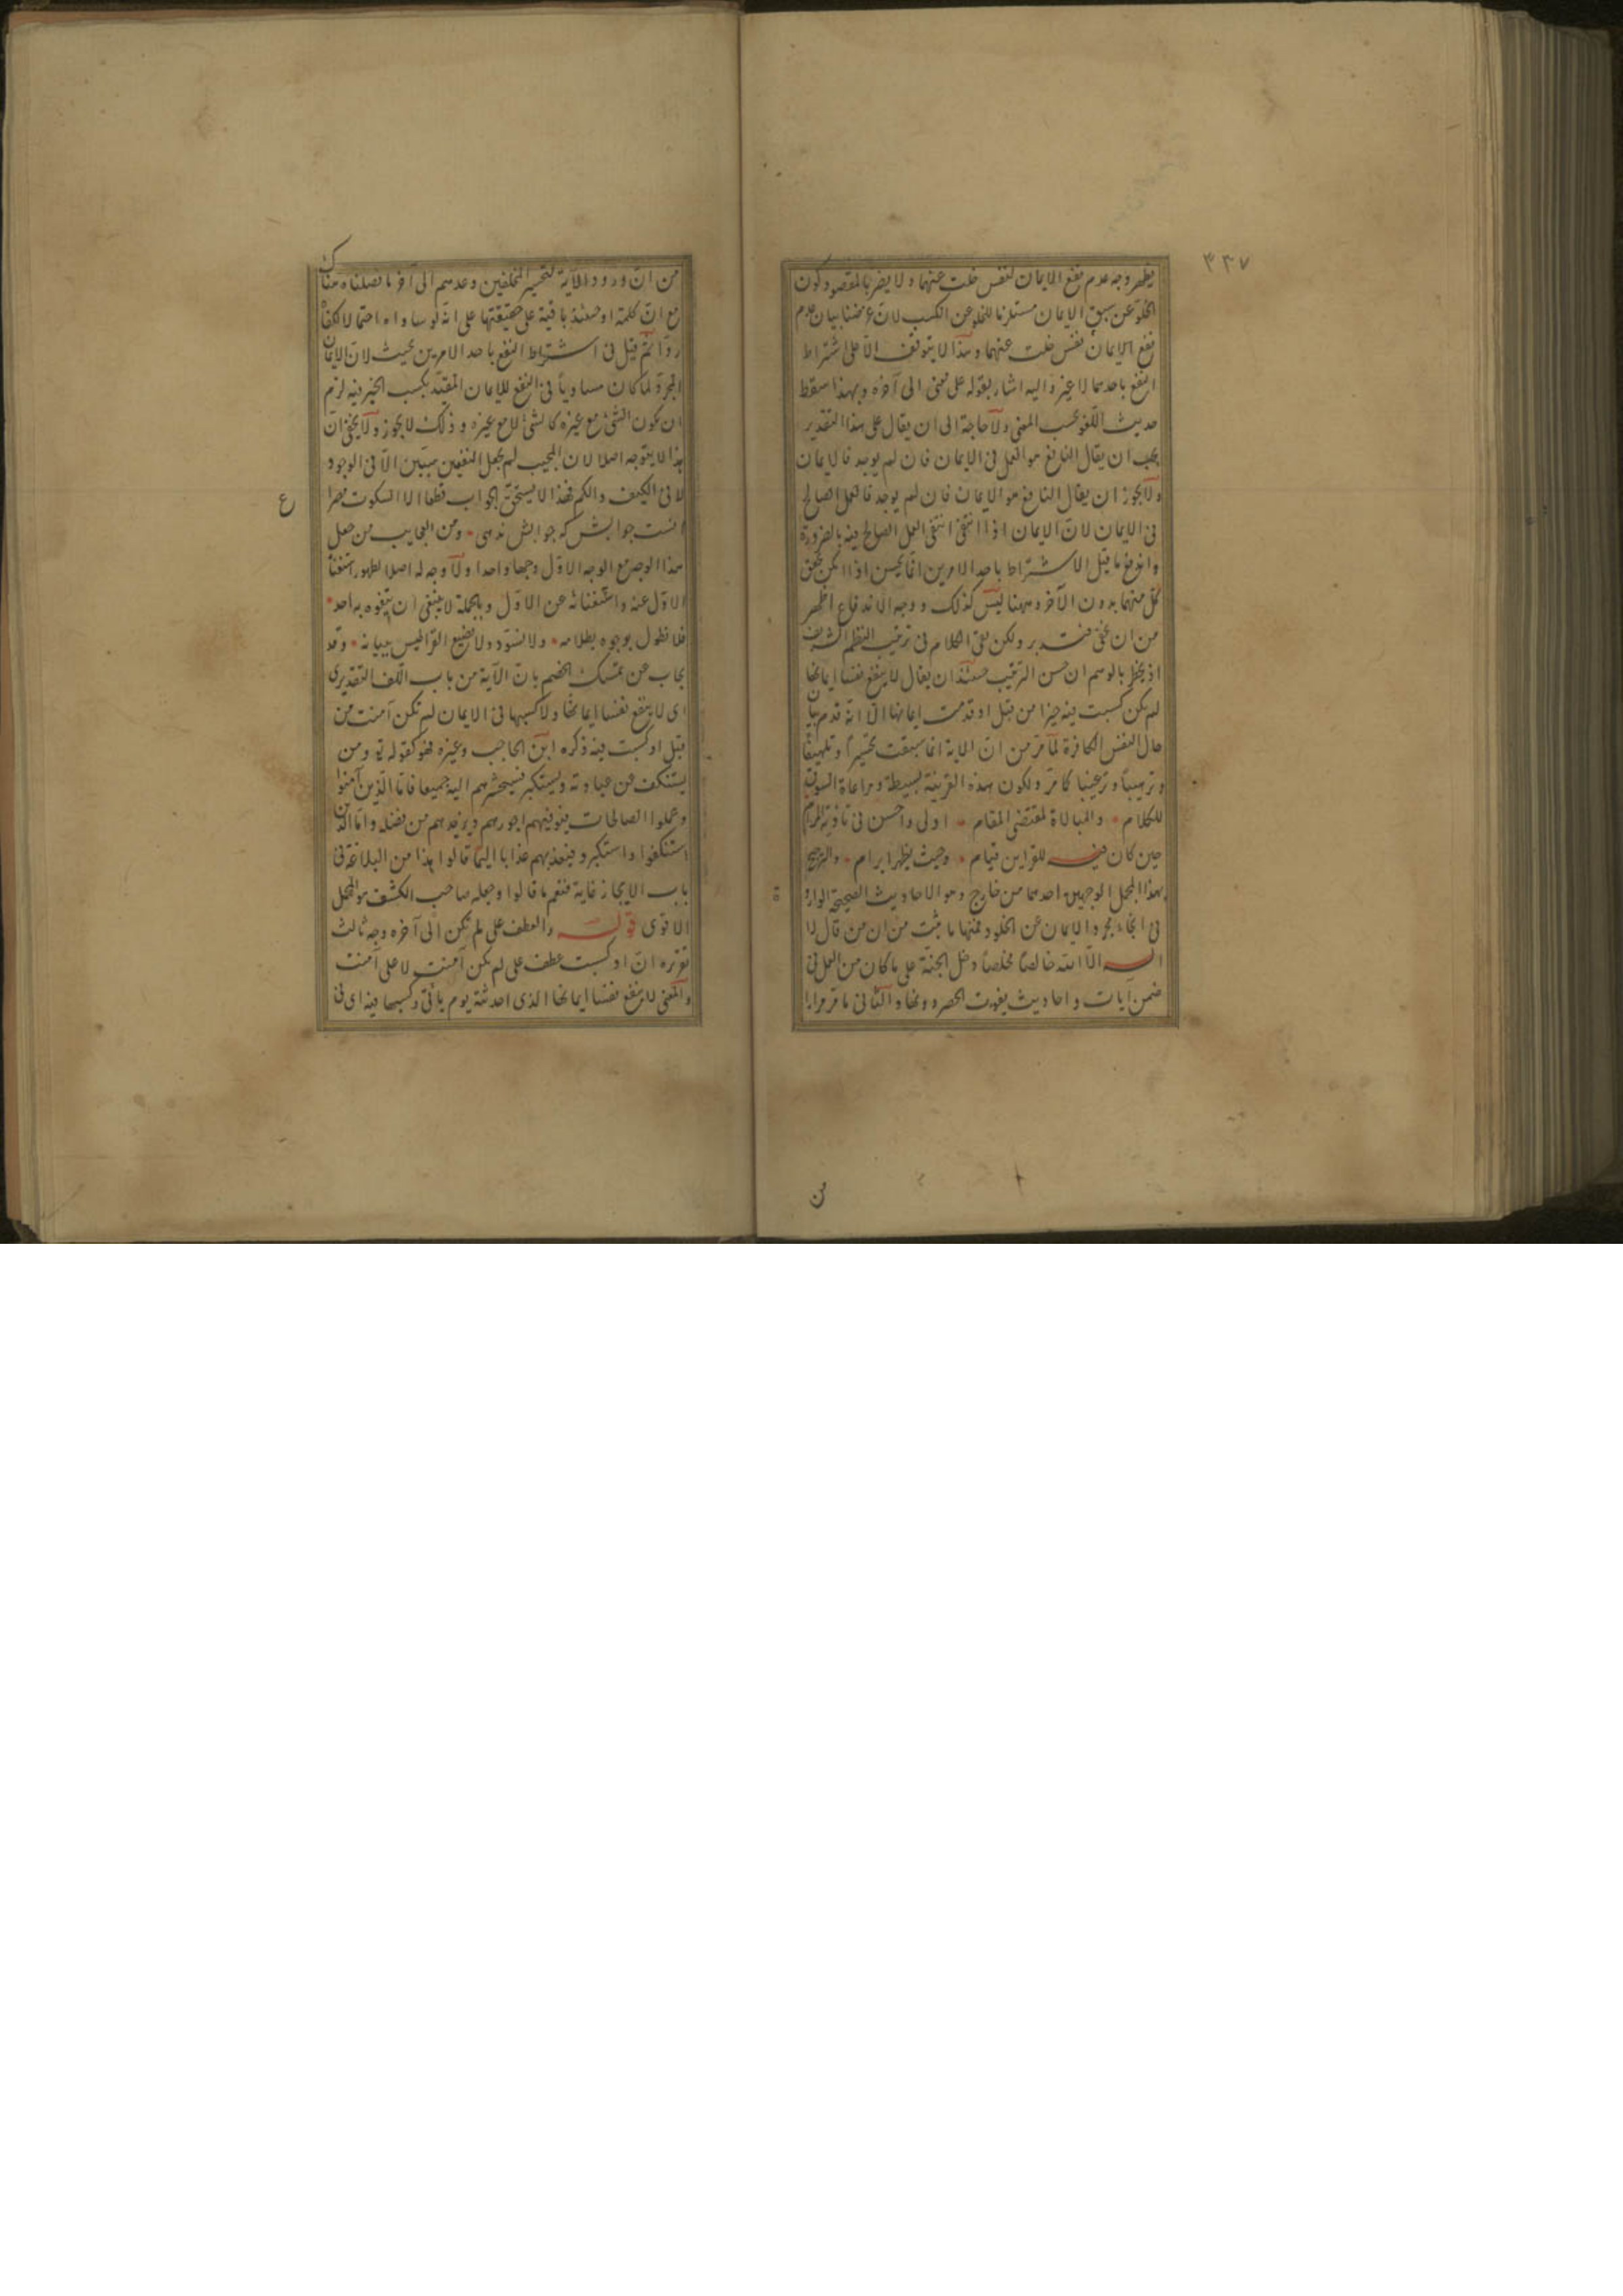 ٣٣٧
يظهر وجه عدم نفع الايمان لنفس خلت عنهما ولا يضر بالمقصود كون
الخلو عن سبق الايمان مستلزما للخلو عن الكسب لان غرضنا بيان عدم
نفع الايمان لنفس خلت عنهما وهذا لا يتوقف الا على اشتراط
النفع باحدهما لا غير واليه اشار بقوله على معنى الى آخره وبهذا سقط
حديث اللغو بحسب المعنى ولا حاجة الى ان يقال على هذا التقدير
يجب ان يقال النافع هو العمل فى الايمان فان لم يوجد فالايمان
ولا يجوز ان يقال النافع هو الايمان فان لم يوجد فالعمل الصالح
فى الايمان لان الايمان اذا انتفى انتفى العمل الصالح فيه بالضرورة
واندفع ما قيل الاشتراط باحد الامرين انما يحسن اذا امكن تحقق
كل منهما بدون الآخر وههنا ليس كذلك ووجه الاندفاع اظهر
من ان يخفى فتدبر ولكن بقى الكلام فى ترتيب النظم الشريف
اذ يخطر بالوهم ان حسن الترتيب حينئذ ان يقال لا ينفع نفسا ايمانها
لم يكن كسبت فيه خيرا من قبل او قدمت ايمانها الا انه قدم بيان
حال النفس الكافرة لما مر من ان الآية انما سيقت تحسيرا وتلهيفا
وترهيبا وترغيبا كما مر ولكون هذه القرينة بسيطة ومراعاة السوق
للكلام والمبالاة لمقتضى المقام اولى واحسن فى تأدية المرام
حين كان فيه للقراين قيام وحيث يظهر ابرام والترجيح
بهذا المحمل لوجهين احدهما من خارج وهو الاحاديث الصحيحة الواردة
فى انجاء مجرد الايمان عن الخلود فمنها ما ثبت من ان من قال لا
اله الا الله خالصا مخلصا دخل الجنة على ما كان من العمل فى
ضمن آيات واحاديث يفوت الحصر دونها والثانى ما مر مرارا
من
من ان ورود الآية لتحسير المخلفين وعدمهم الى آخر ما فصلناه هناك
مع ان كلمة او حينئذ باقية على حقيقتها على انه لو ساواه احتمالا لكفانا
ردا ثم قيل فى اشتراط النفع باحد الامرين بحيث لان الايمان
المجرد لما كان مساويا فى النفع للايمان المقيد بكسب الخير فيه لزم
ان يكون الشئ مع غيره كالشئ لا مع غيره وذلك لا يجوز ولا يخفى ان
هذا لا يتوجه اصلا لان المجيب لم يجعل النفعين سيين الا فى الوجود
لا فى الكيف والكم فهذا لا يستحق الجواب قطعا الا السكوت مصراع
ع
انست جوابش كه جوابش ندهى ومن العجايب من جعل
هذا الوجه مع الوجه الاول وجها واحدا ولا وجه له اصلا لظهور استغناء
الاول عنه واستغنائه عن الاول وبالجملة لا ينبغى ان يتفوه به احد
فلا نطول بوجوه بطلانه ولا نسود ولا نضيع القراطيس ببيانه وقد
يجاب عن تمسك الخصم بان الآية من باب اللف التقديرى
اى لا ينفع نفسا ايمانها ولا كسبها فى الايمان لم تكن آمنت من
قبل او كسبت فيه ذكره ابن الحاجب وغيره فهو كقوله تع ومن
يستنكف عن عبادته ويستكبر فسيحشرهم اليه جميعا فاما الذين آمنوا
وعملوا الصالحات فيوفيهم اجورهم ويزيدهم من فضله واما الذين
استنكفوا واستكبروا فيعذبهم عذابا اليما قالوا هذا من البلاغة فى
باب الايجاز غاية فنعم ما قالوا وجعله صاحب الكشف هو المحمل
الاقوى قوله والعطف على لم تكن الى آخره وجه ثالث
تقريره ان او كسبت عطف على لم يكن آمنت لا على آمنت
والمعنى لا ينفع نفسا ايمانها الذى احدثته يوم يأتى وكسبها فيه اى فى